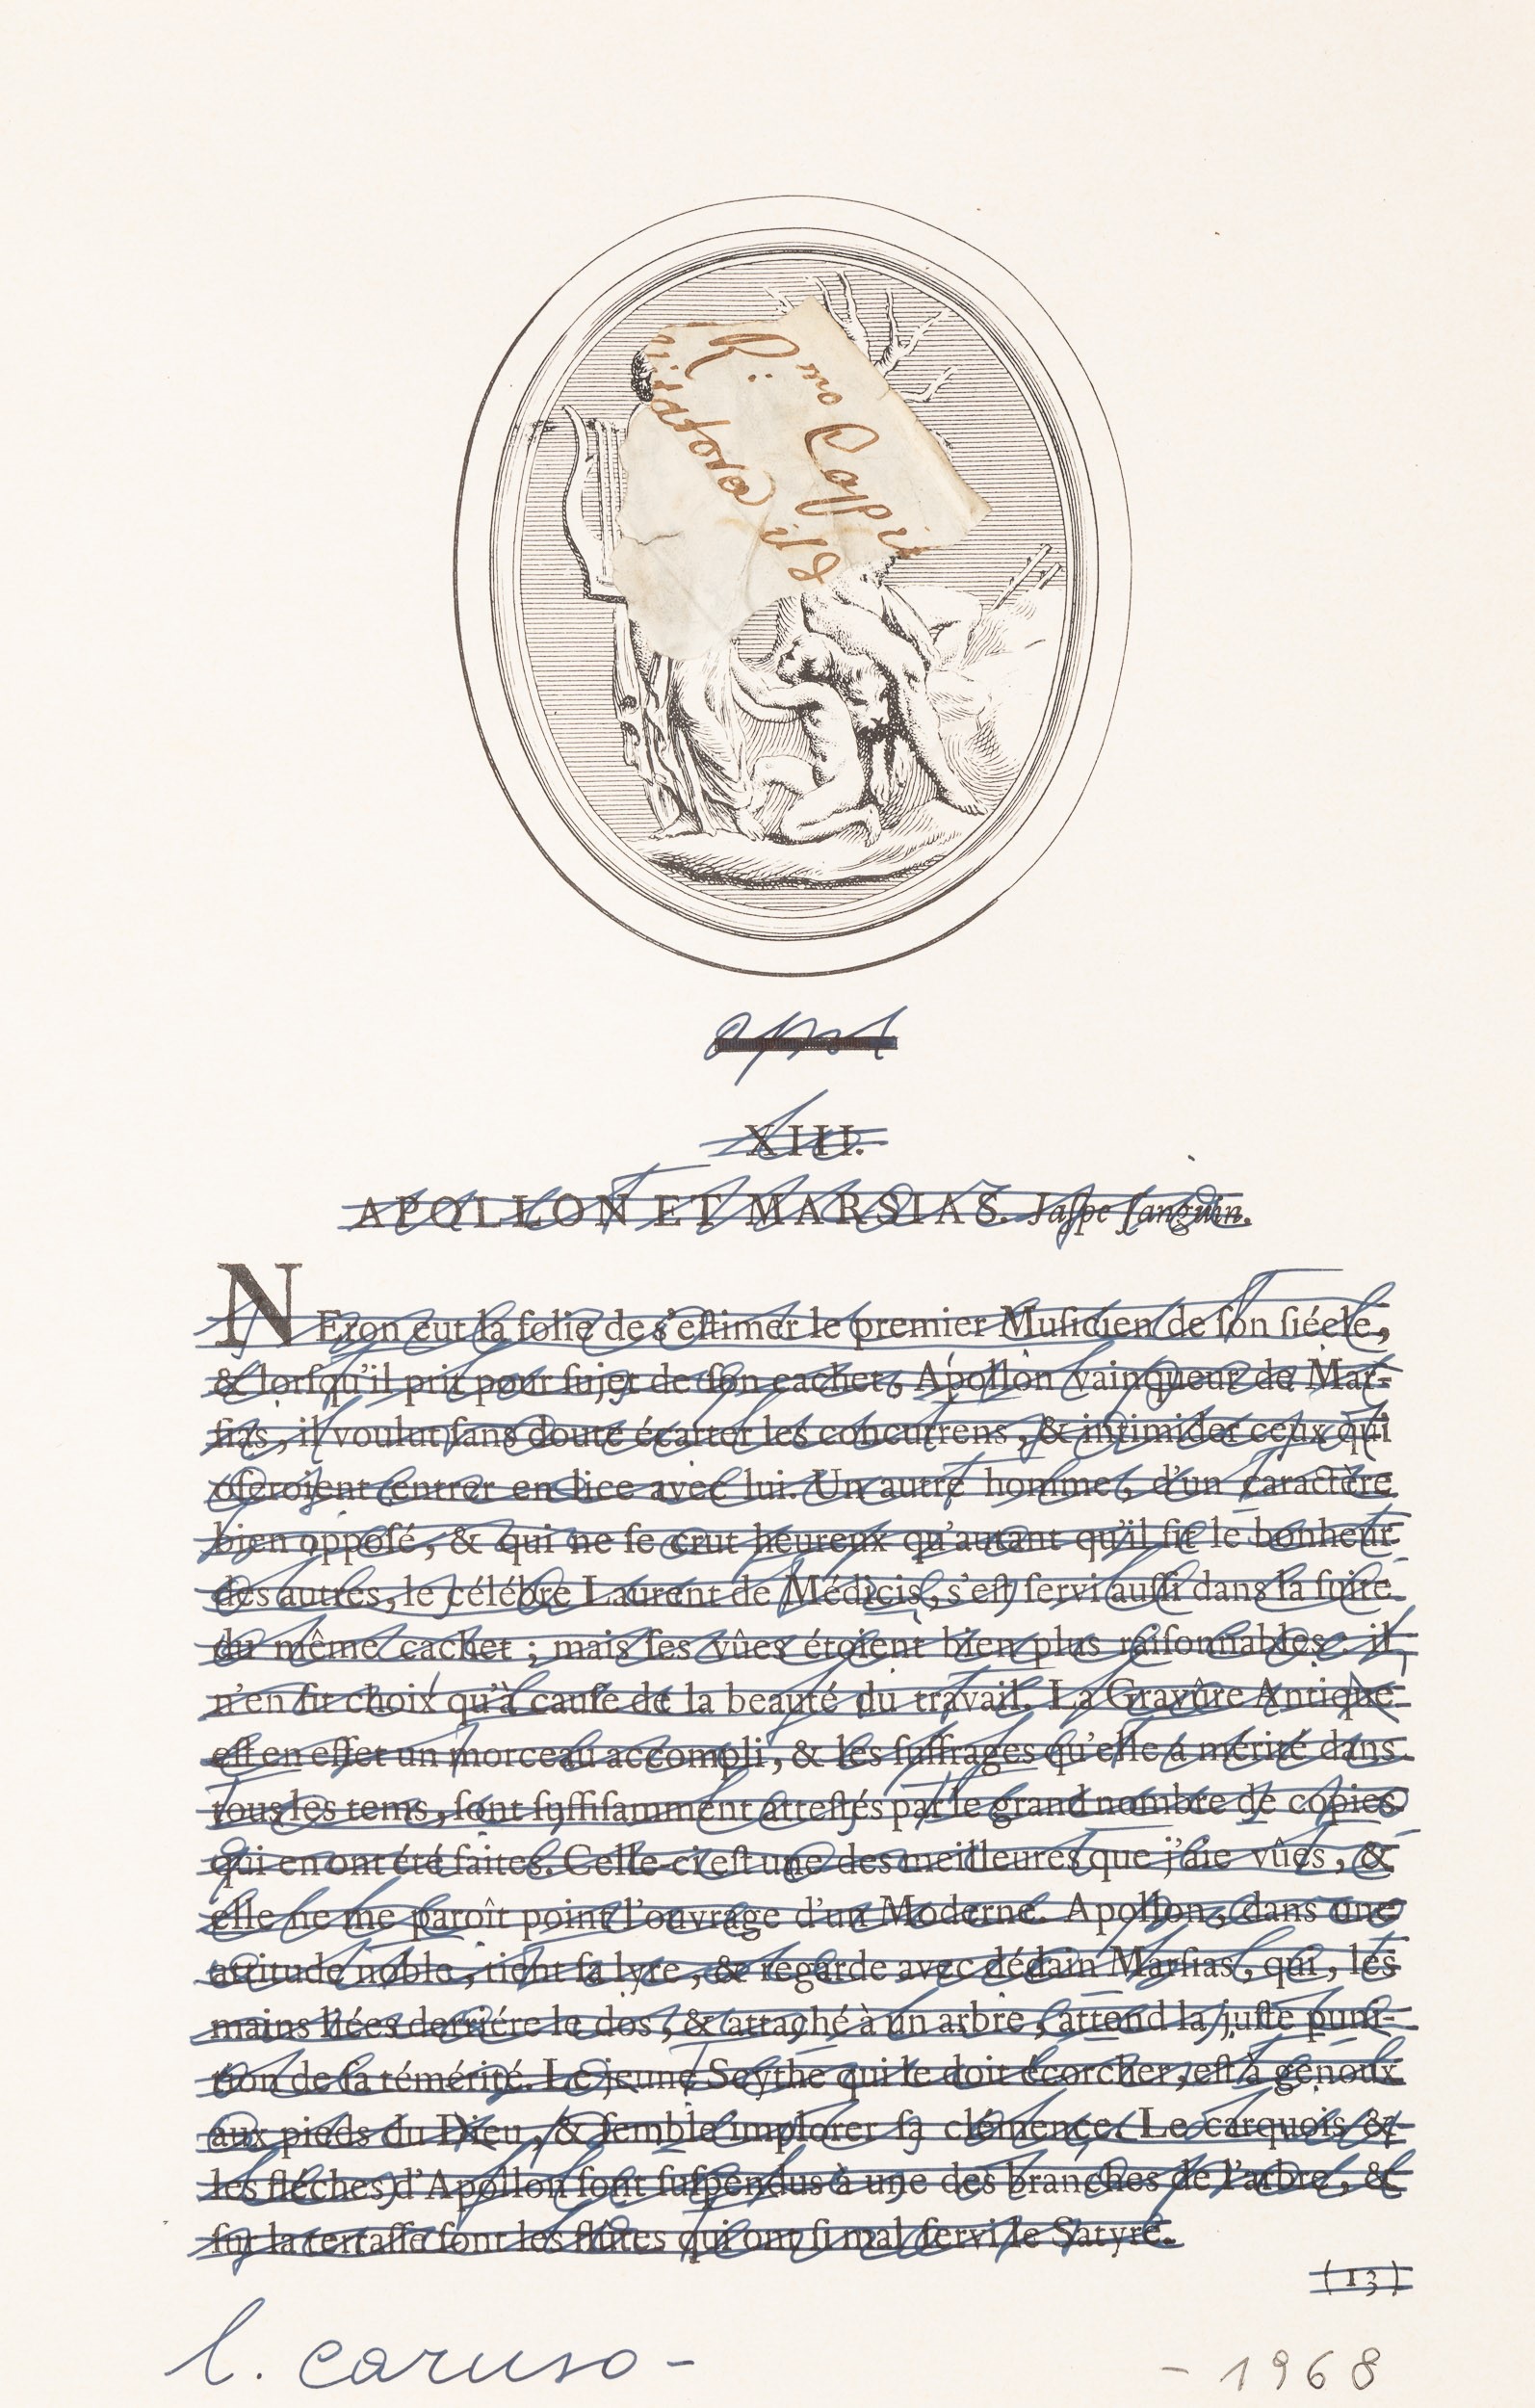 R:mo Capi
XIII.
APOLLON ET MARSIAS. Jaſpe ſanguin.
NEron eut la folie de s'eſtimer le premier Muſicien de ſon ſiécle,
& lorſqu'il prit pour ſujet de ſon cachet, Apollon vainqueur de Mar-
ſias, il voulut ſans doute écarter les concurrens, & intimider ceux qui
oſeroient entrer en lice avec lui. Un autre homme, d'un caractère
bien oppoſé, & qui ne ſe crut heureux qu'autant qu'il fit le bonheur
des autres, le célébre Laurent de Médicis, s'eſt ſervi auſſi dans la ſuite
du même cachet ; mais ſes vûes étoient bien plus raiſonnables : il
n'en fit choix qu'à cauſe de la beauté du travail. La Gravûre Antique
eſt en effet un morceau accompli, & les ſuffrages qu'elle a mérité dans
tous les tems, ſont ſuffiſamment atteſtés par le grand nombre de copies
qui en ont été faites. Celle-ci eſt une des meilleures que j'aie vûes, &
elle ne me paroît point l'ouvrage d'un Moderne. Apollon, dans une
attitude noble, tient ſa lyre, & regarde avec dédain Marſias, qui, les
mains liées derriére le dos, & attaché à un arbre, attend la juſte puni-
tion de ſa témérité. Le jeune Scythe qui le doit écorcher, eſt à genoux
aux pieds du Dieu, & ſemble implorer ſa clémence. Le carquois &
les fléches d'Apollon ſont ſuſpendus à une des branches de l'arbre, &
ſur la terraſſe ſont les flûtes qui ont ſi mal ſervi le Satyre.
(13)
l. caruso -
- 1968